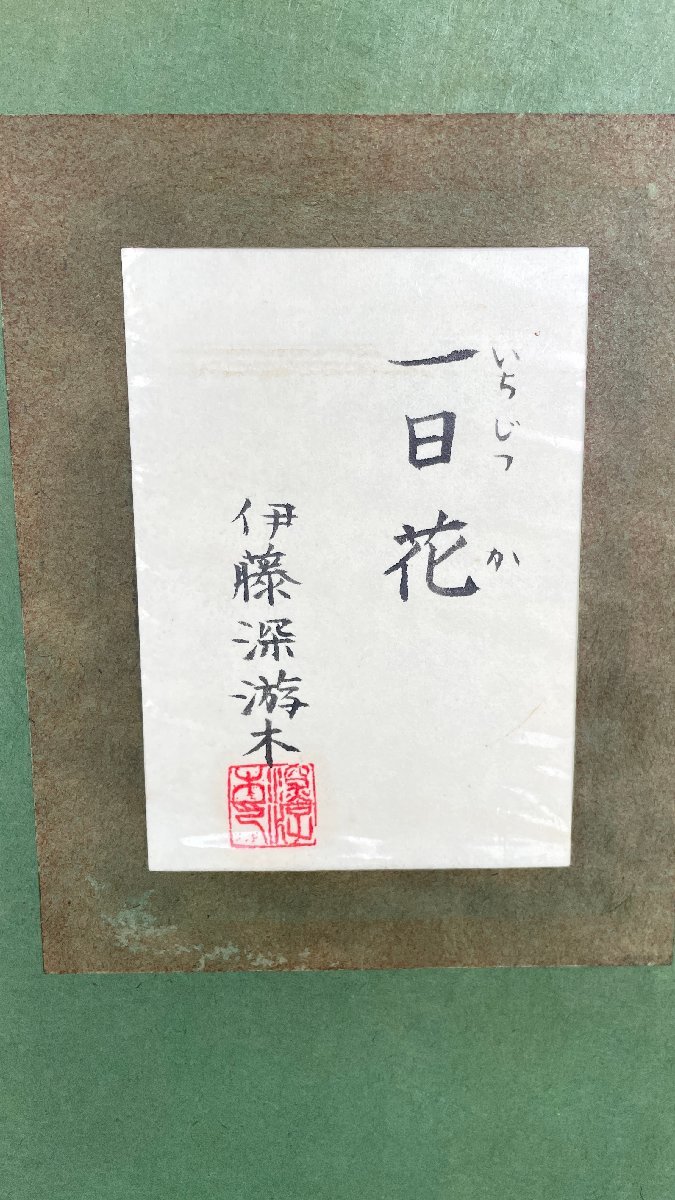 一日花
いちじつか
伊藤深游木